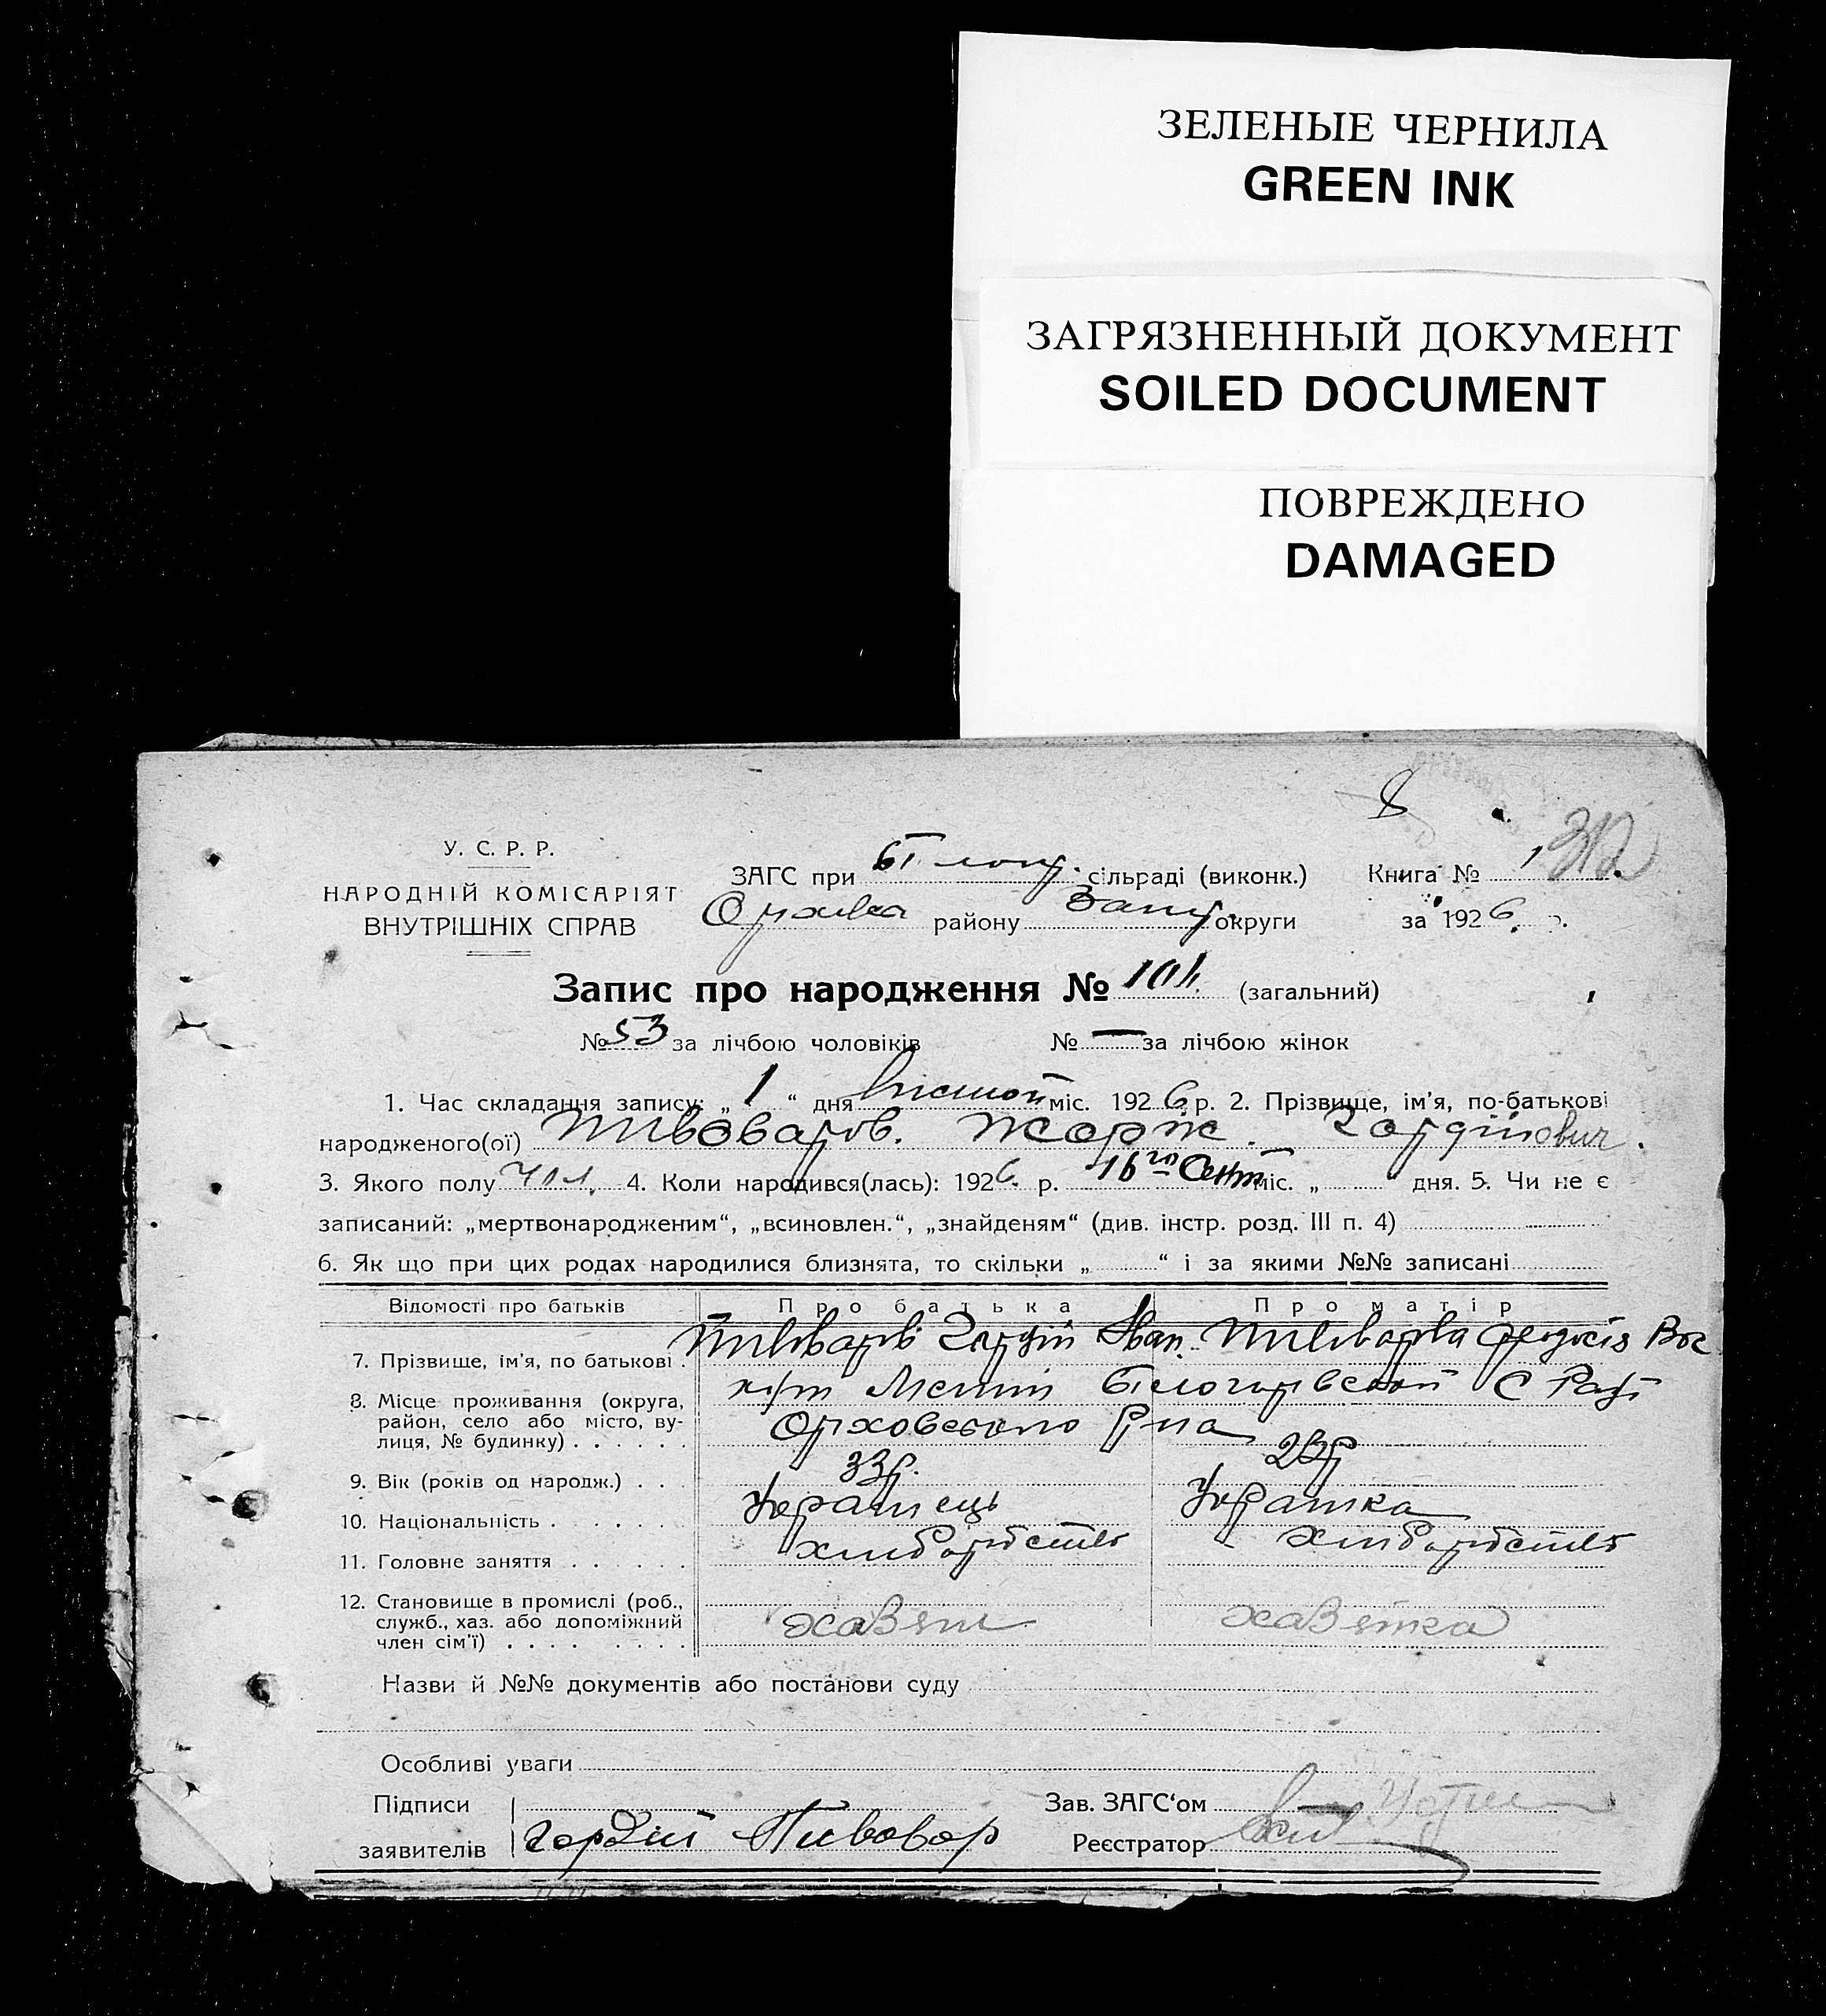 ЗЕЛЕНЫЕ ЧЕРНИЛА
GREEN INK
ЗАГРЯЗНЕННЫЙ ДОКУМЕНТ
SOILED DOCUMENT
ПОВРЕЖДЕНО
DAMAGED
8
У. С. Р. Р.
НАРОДНІЙ КОМІСАРІЯТ
ВНУТРІШНІХ СПРАВ
ЗАГС при сільраді (виконк.) Книга № 1
району Запор. округи за 1926 р.
Запис про народження № 104 (загальний)
№ 53 за лічбою чоловіків № — за лічбою жінок
1. Час складання запису: „ 1 “ дня міс. 1926 р. 2. Прізвище, ім'я, по-батькові
народженого(ої) Пивоваров. Жорж. Гордійович.
3. Якого полу чол. 4. Коли народився(лась): 1926. р. 16го Сент міс. „ “ дня. 5. Чи не є
записаний: „мертвонародженим“, „всиновлен.“, „знайденям“ (див. інстр. розд. III п. 4)
6. Як що при цих родах народилися близнята, то скільки „ “ і за якими №№ записані
Відомості про батьків Про батька Про матір
7. Прізвище, ім'я, по батькові . Пивоварів Гордій Іван. Пивоварва Феодосія Вас
8. Місце проживання (округа, Білогорівской С Ради
район, село або місто, ву- Орховского Рна
лиця, № будинку) . . . . . .
9. Вік (років од народж.) . . . 33р. 23р
10. Національність . . . . . . Українець Українка
11. Головне заняття . . . . . хлиборобство хлиборобство
12. Становище в промислі (роб.,
служб., хаз. або допоміжний хазяін хазяйка
член сім'ї) . . . . . . . . .
Назви й №№ документів або постанови суду
Особливі уваги
Підписи Зав. ЗАГС'ом
заявителів Гордій Пивовар Реєстратор